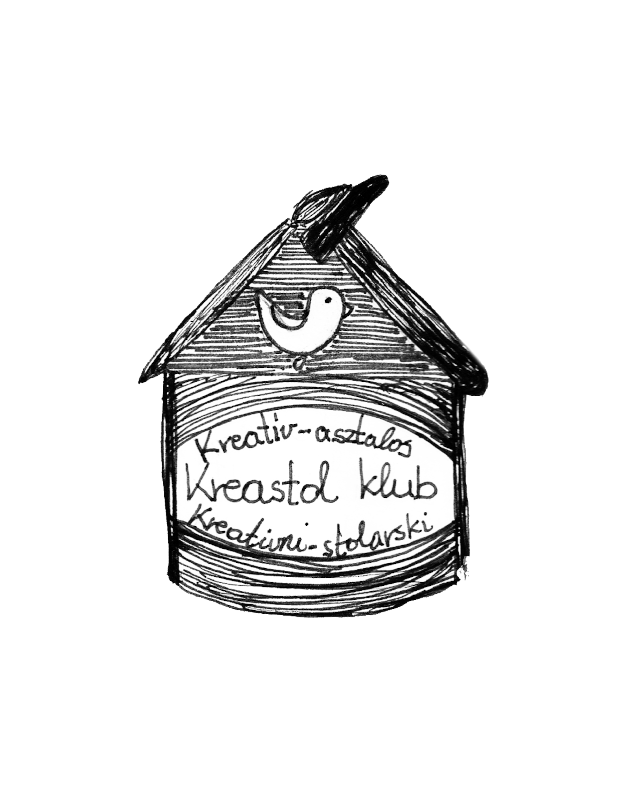 Kreativ-asztalos
Kreastol klub
Kreativni-stolarski